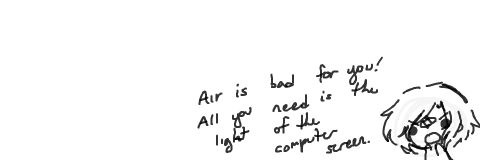 Air is bad for you!
All you need is the
light of the
computer screen.